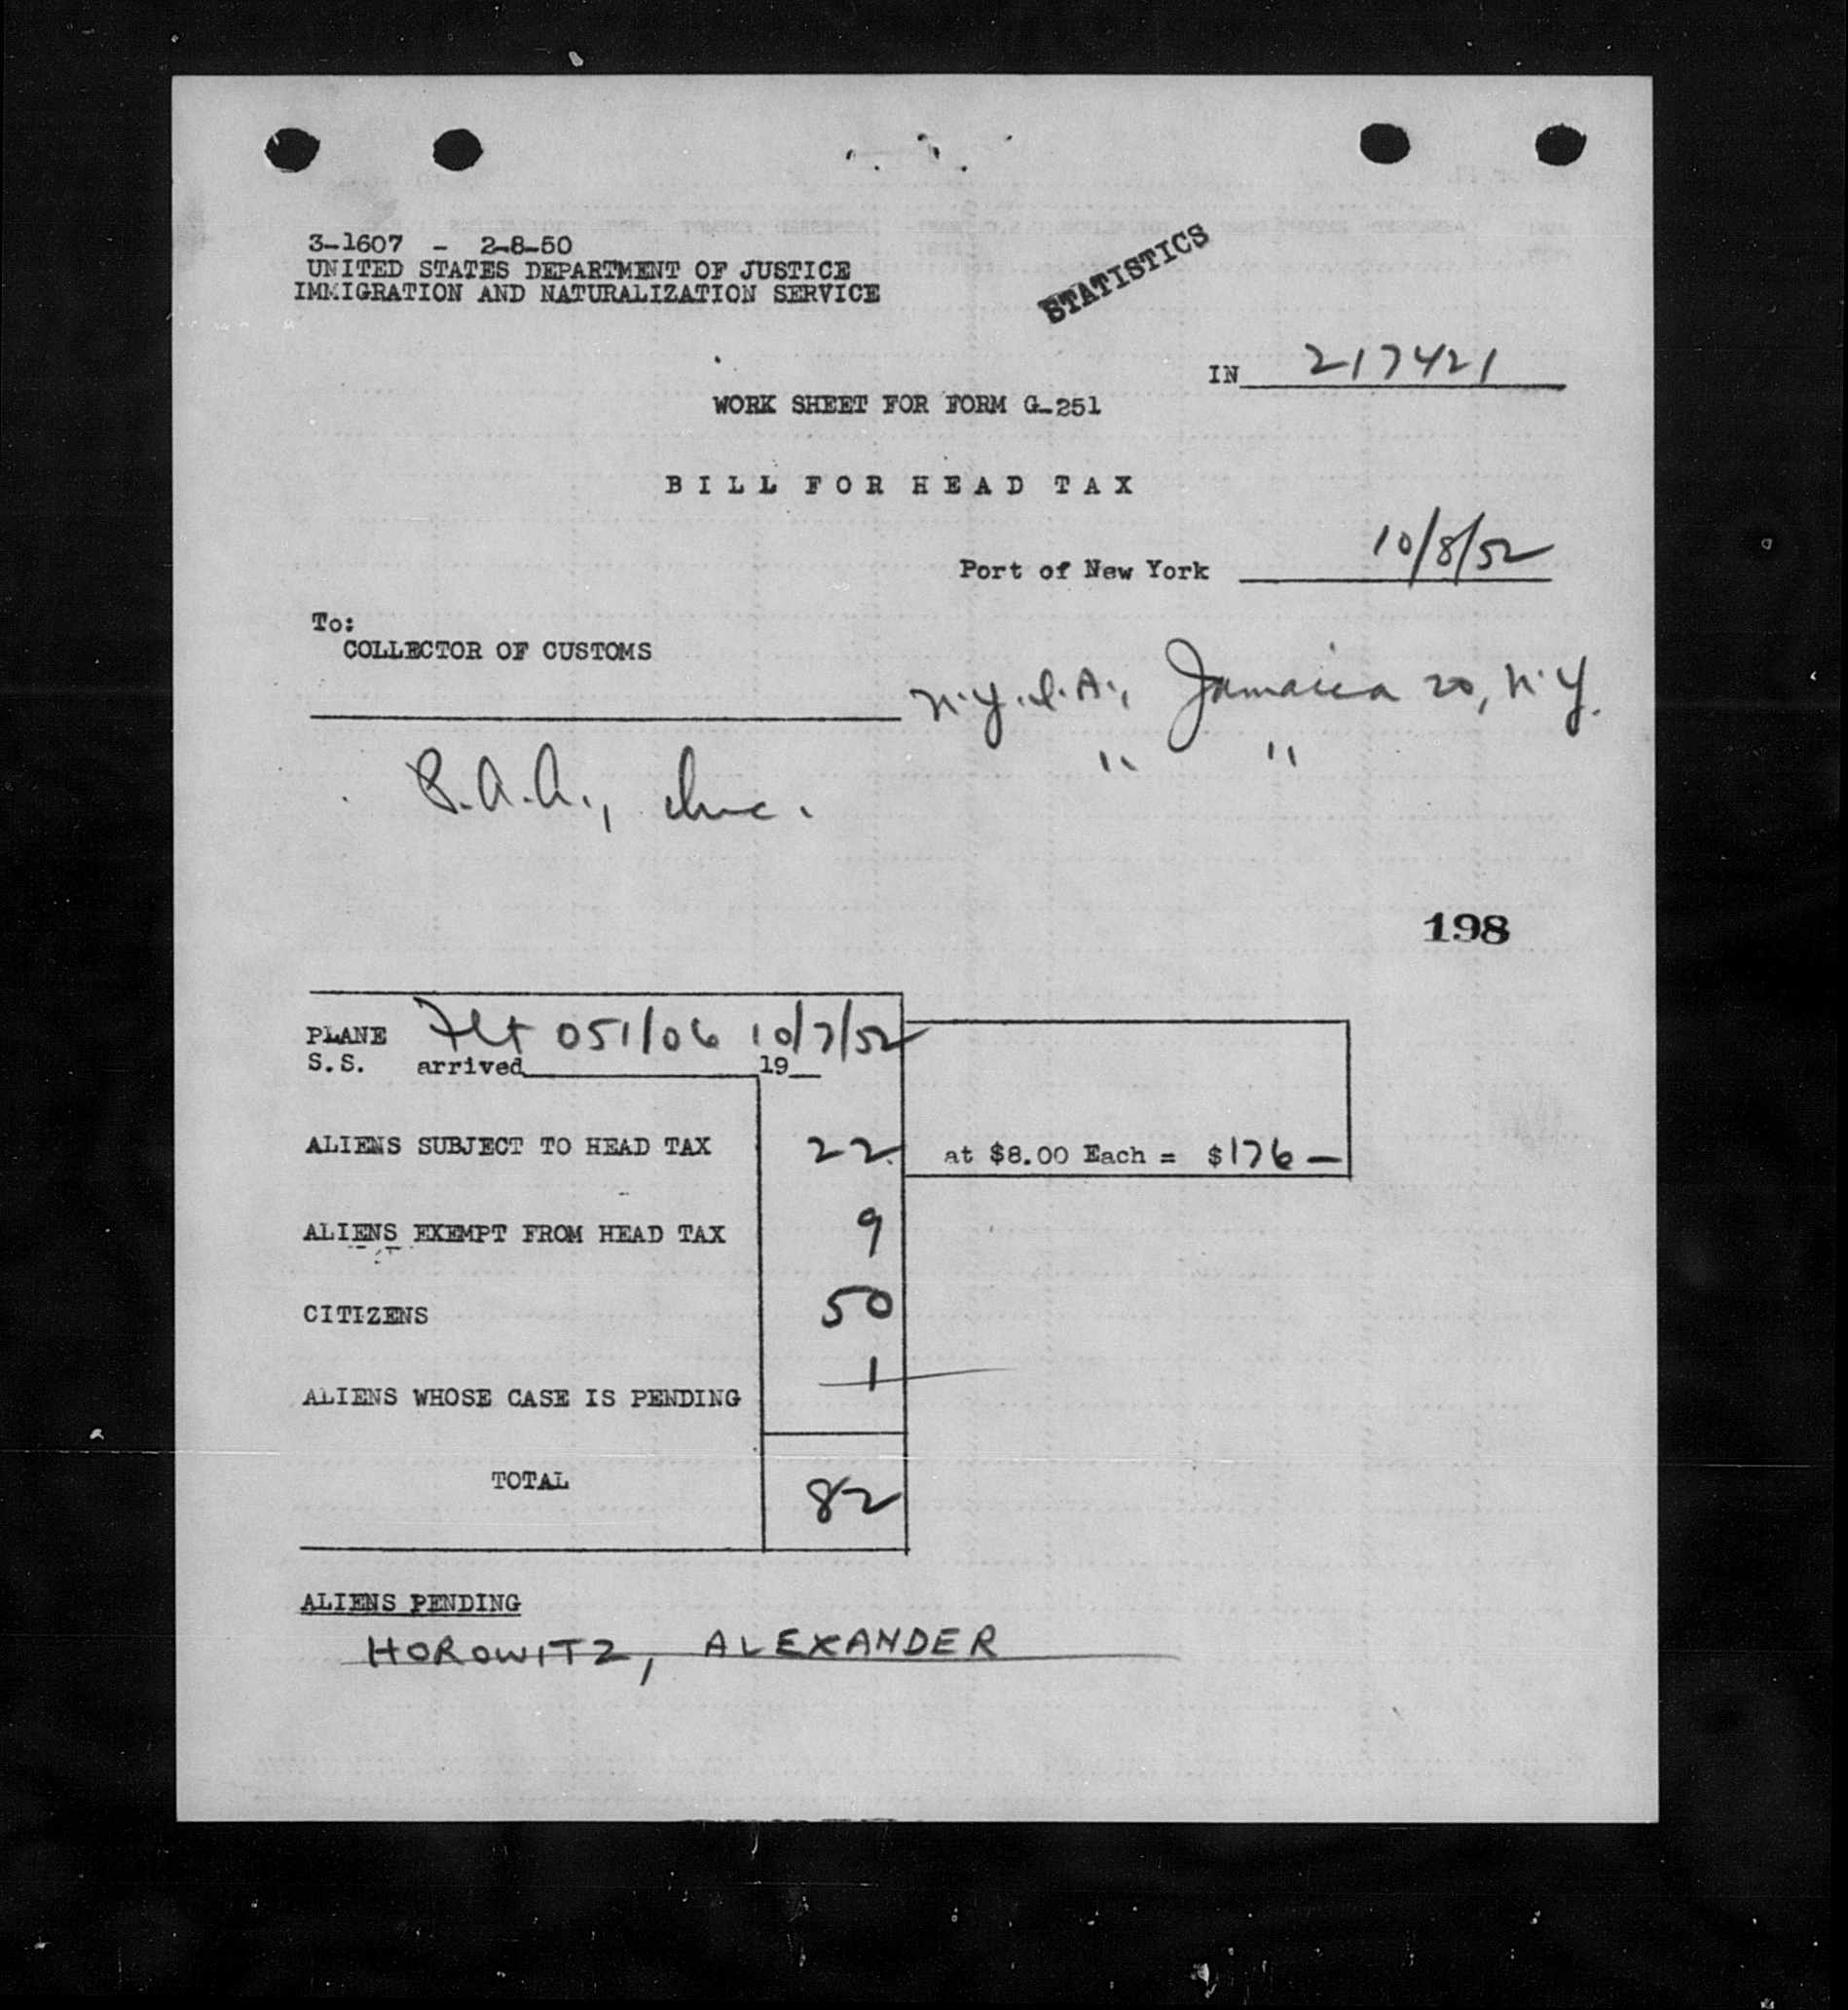 3-1607 - 2-8-50
UNITED STATES DEPARTMENT OF JUSTICE
IMMIGRATION AND NATURALIZATION SERVICE
STATISTICS
IN 217421
WORK SHEET FOR FORM G-251
BILL FOR HEAD TAX
Port of New York 10/8/52
To:
COLLECTOR OF CUSTOMS
N.Y.I.A., Jamaica 20, N.Y.
P.A.A., Inc. " "
198
PLANE Flt 051/06 10/7/52
S.S. arrived 19
ALIENS SUBJECT TO HEAD TAX 22 at $8.00 Each = $176 —
ALIENS EXEMPT FROM HEAD TAX 9
CITIZENS 50
ALIENS WHOSE CASE IS PENDING 1
TOTAL 82
ALIENS PENDING
HOROWITZ, ALEXANDER